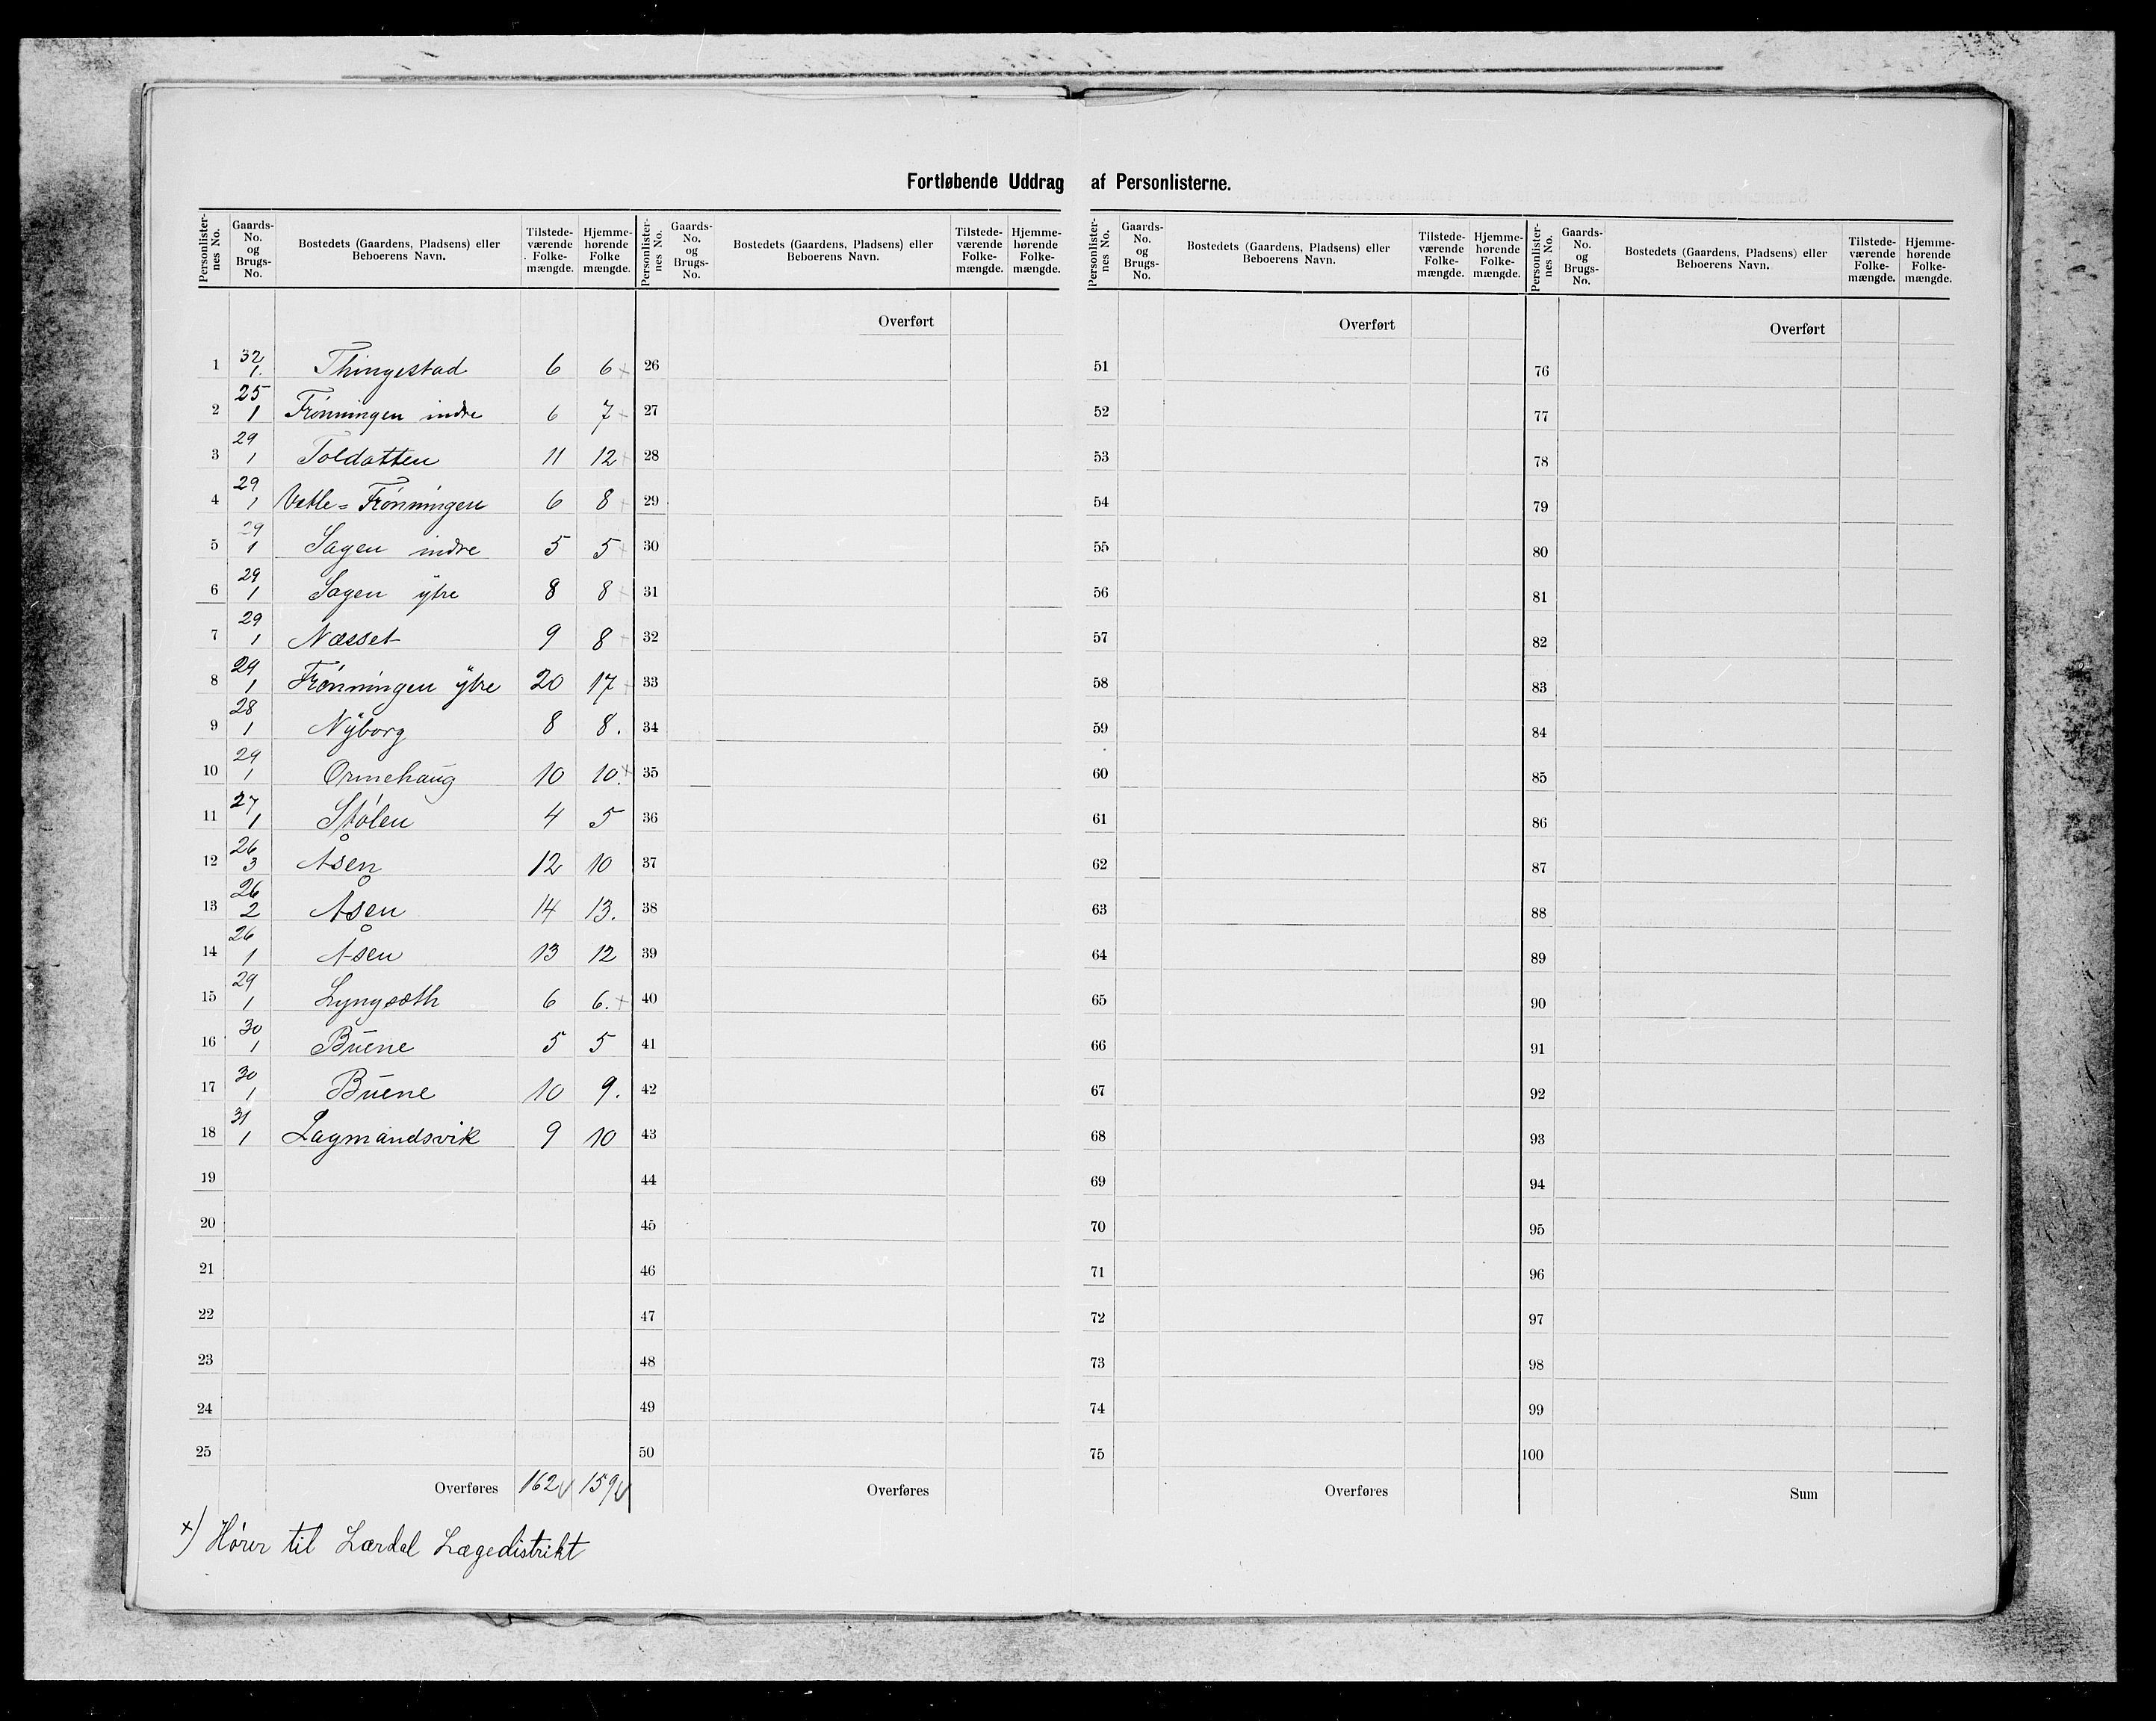 Fortløbende Uddrag af Personlisterne.
Personlister-nes No. Gaards-No. og Brugs-No. Bostedets (Gaardens, Pladsens) eller Beboerens Navn. Tilstede-værende Folke-mængde. Hjemme-hørende Folke mængde.
Personlister-nes No. Gaards-No. og Brugs-No. Bostedets (Gaardens, Pladsens) eller Beboerens Navn. Tilstede-værende Folke-mængde. Hjemme-hørende Folke-mængde.
Personlister-nes No. Gaards-No. og Brugs-No. Bostedets (Gaardens, Pladsens) eller Beboerens Navn. Tilstede-værende Folke-mængde. Hjemme-hørende Folke-mængde.
Personlister-nes No. Gaards-No. og Brugs-No. Bostedets (Gaardens, Pladsens) eller Beboerens Navn. Tilstede-værende Folke-mængde. Hjemme-hørende Folke-mængde.
Overført Overført Overført
1 32/1. Thingestad 6 6 + 26 51 76
2 25/1 Frönningen indre 6 7 + 27 52 77
3 29/1 Toldatten 11 12 + 28 53 78
4 29/1 Vetle=Frönningen 6 8 + 29 54 79
5 29/1 Sagen indre 5 5 + 30 55 80
6 29/1 Sagen ÿtre 8 8 + 31 56 81
7 29/1 Næsset 9 8 + 32 57 82
8 29/1 Frönningen ÿtre 20 17 + 33 58 83
9 28/1 Nÿborg 8 8. 34 59 84
10 29/1 Ormehaug 10 10. + 35 60 85
11 27/1 Stölen 4 5 36 61 86
12 26/3 Åsen 12 10 37 62 87
13 26/2 Åsen 14 13. 38 63 88
14 26/1 Åsen 13 12 39 64 89
15 29/1 Lyngsæth 6 6. + 40 65 90
16 30/1 Buene 5 5 41 66 91
17 30/1 Buene 10 9. 42 67 92
18 31/1 Lagmandsvik 9 10 43 68 93
19 44 69 94
20 45 70 95
21 46 71 96
22 47 72 97
23 48 73 98
24 49 74 99
25 50 75 100
Overføres 162 159 Overføres Overføres Sum
+) Hører til Lærdal Lægedistrikt